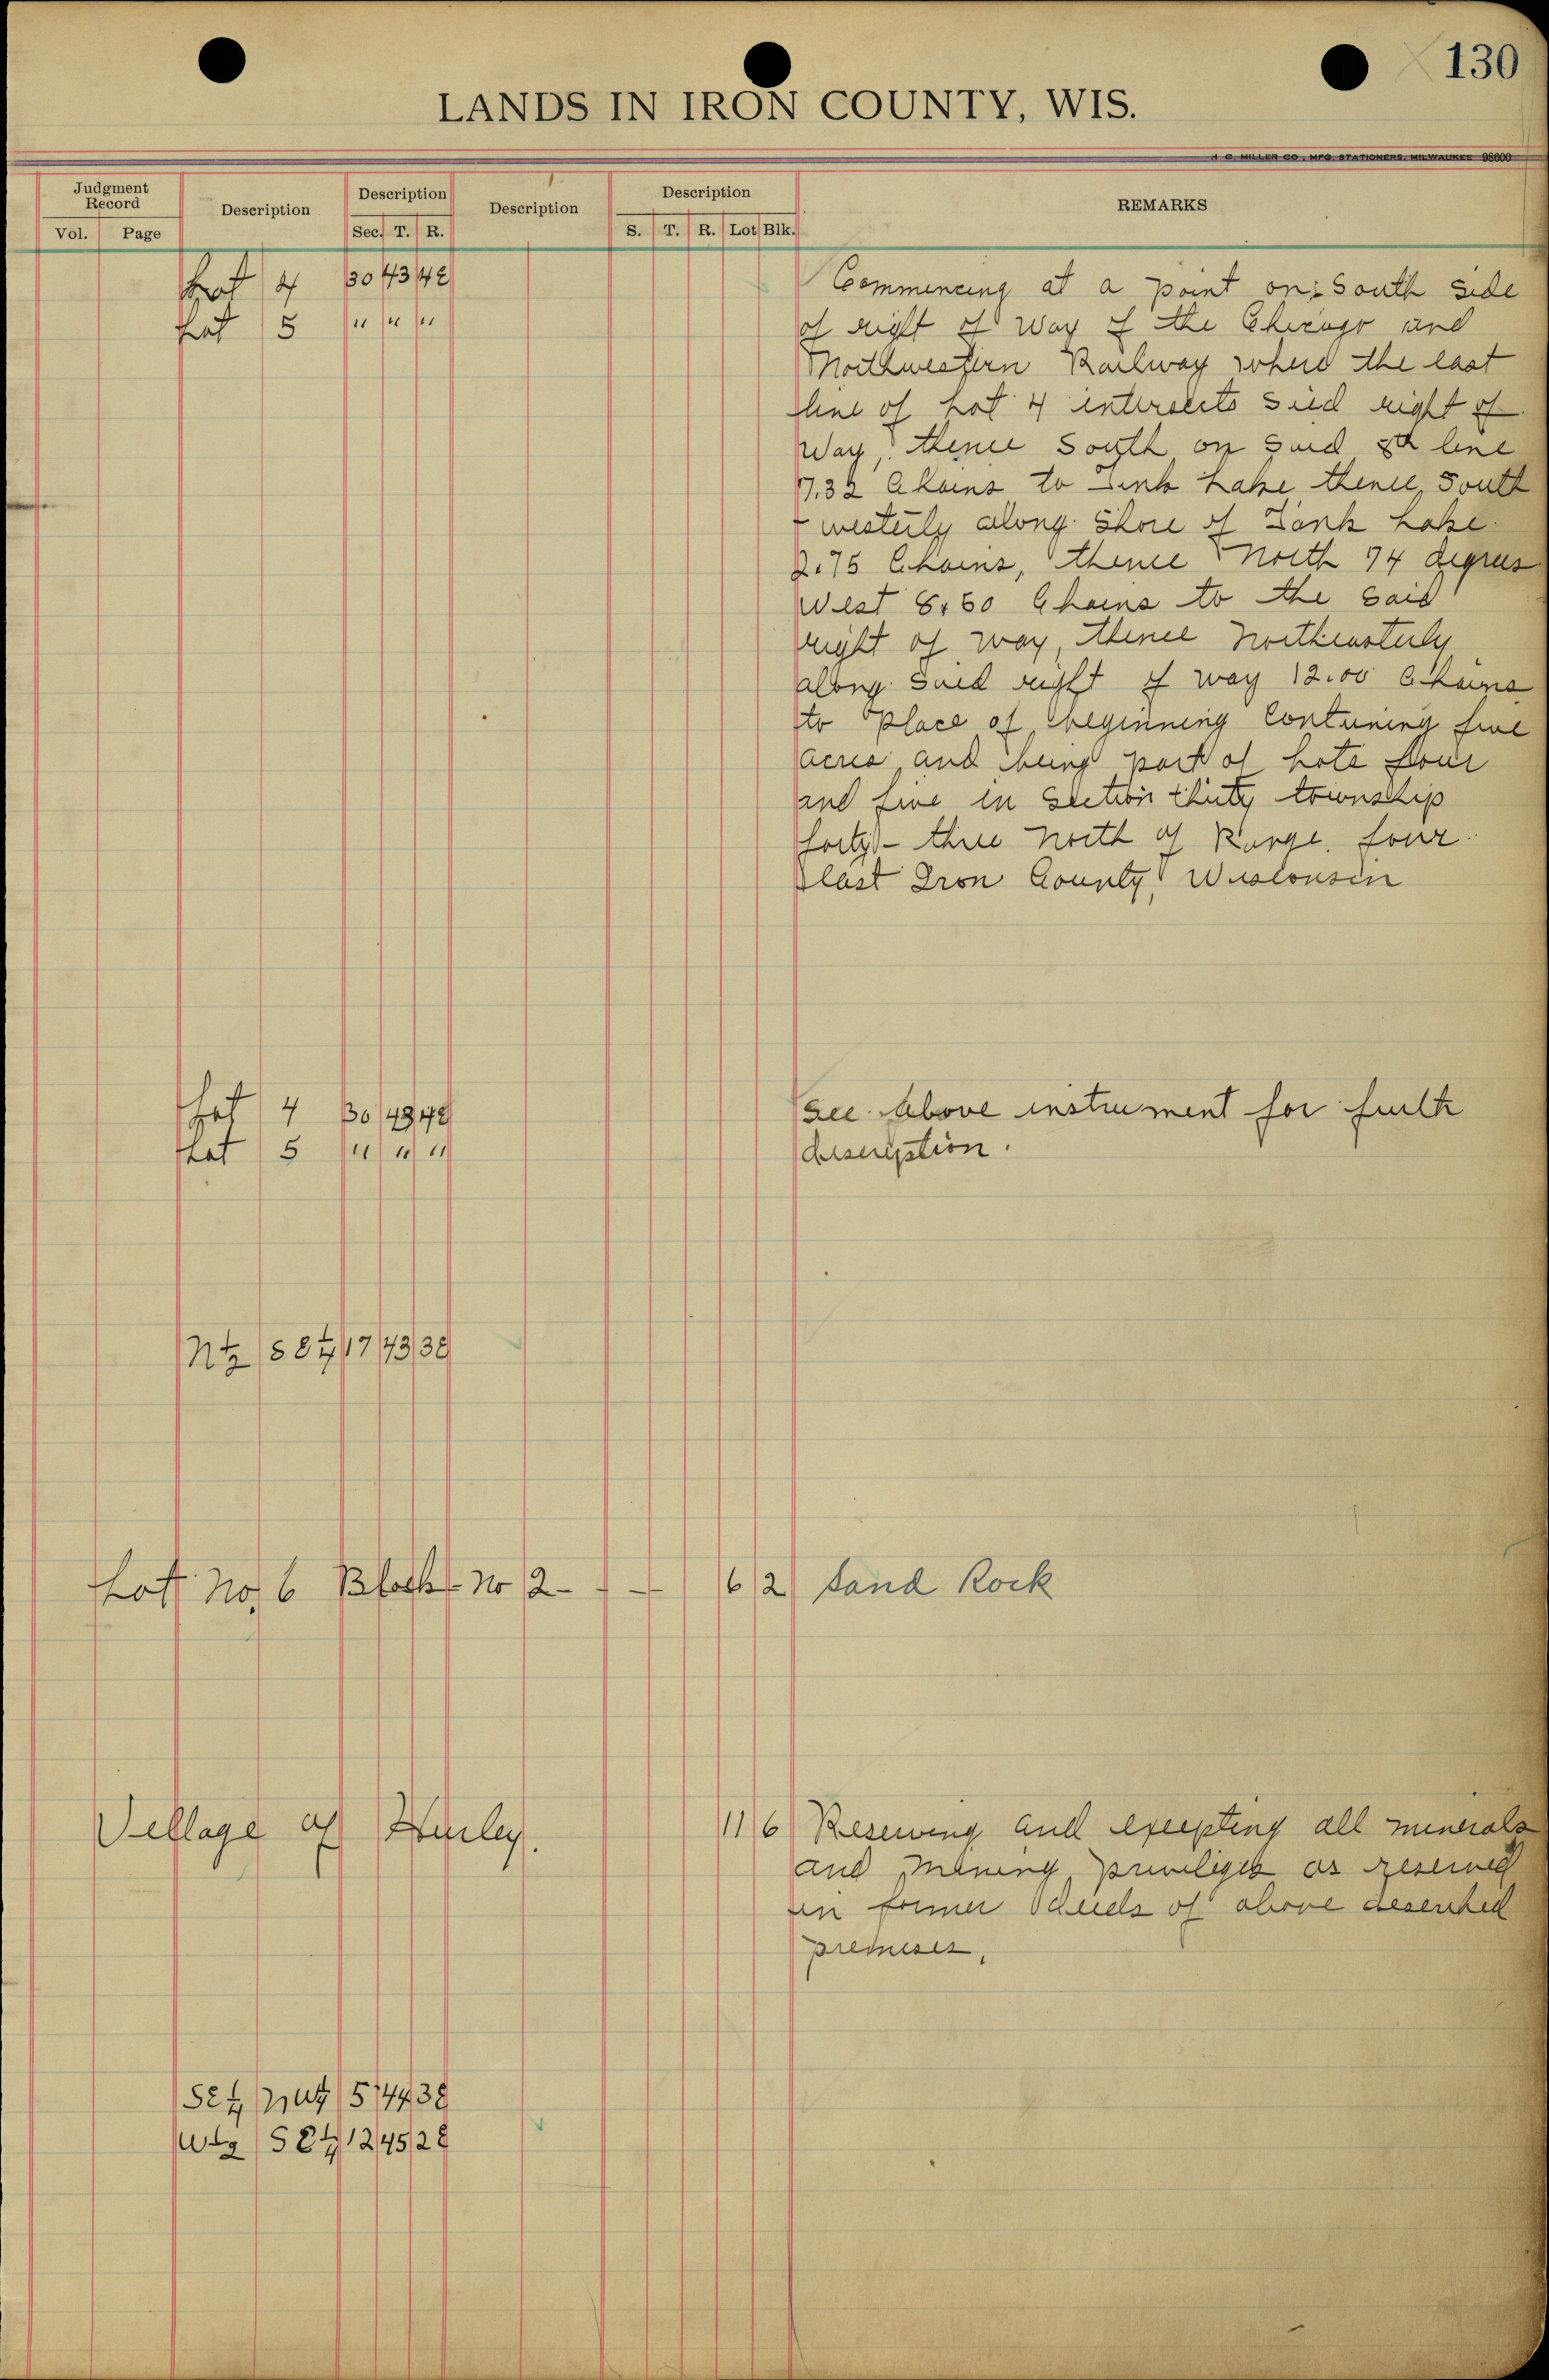 130
LANDS IN IRON COUNTY, WIS.
H. C. MILLER CO., MFG. STATIONERS, MILWAUKEE 98600
Judgment Record
Vol. Page
Description
Description
Sec. T. R.
Description
Description
S. T. R. Lot Blk.
REMARKS
Lot 4 30 43 4E
Lot 5 " " "
Commencing at a point on South side
of right of way of the Chicago and
Northwestern Railway where the east
line of Lot 4 intersects said right of
Way, thence South on said line
7.32 Chains to Lake thence, South
- westerly along Shore of Lake
2.75 Chains, thence North 74 degrees
West 8.50 Chains to the said
right of way, thence Northeasterly
along said right of way 12.00 Chains
to place of beginning Containing five
acres and being part of Lots four
and five in Section thirty township
forty - three North of Range four
East Iron County, Wisconsin
Lot 4 30 43 4E
Lot 5 " " "
See Above instrument for furth
description.
N½ SE¼ 17 43 3E
Lot No. 6 Block No 2 - - - 6 2 Sand Rock
Village of Hurley. 11 6 Reserving and excepting all minerals
and mining priviliges as reserved
in former deeds of above described
premises.
SE¼ NW¼ 5 44 3E
W½ SE¼ 12 45 2E